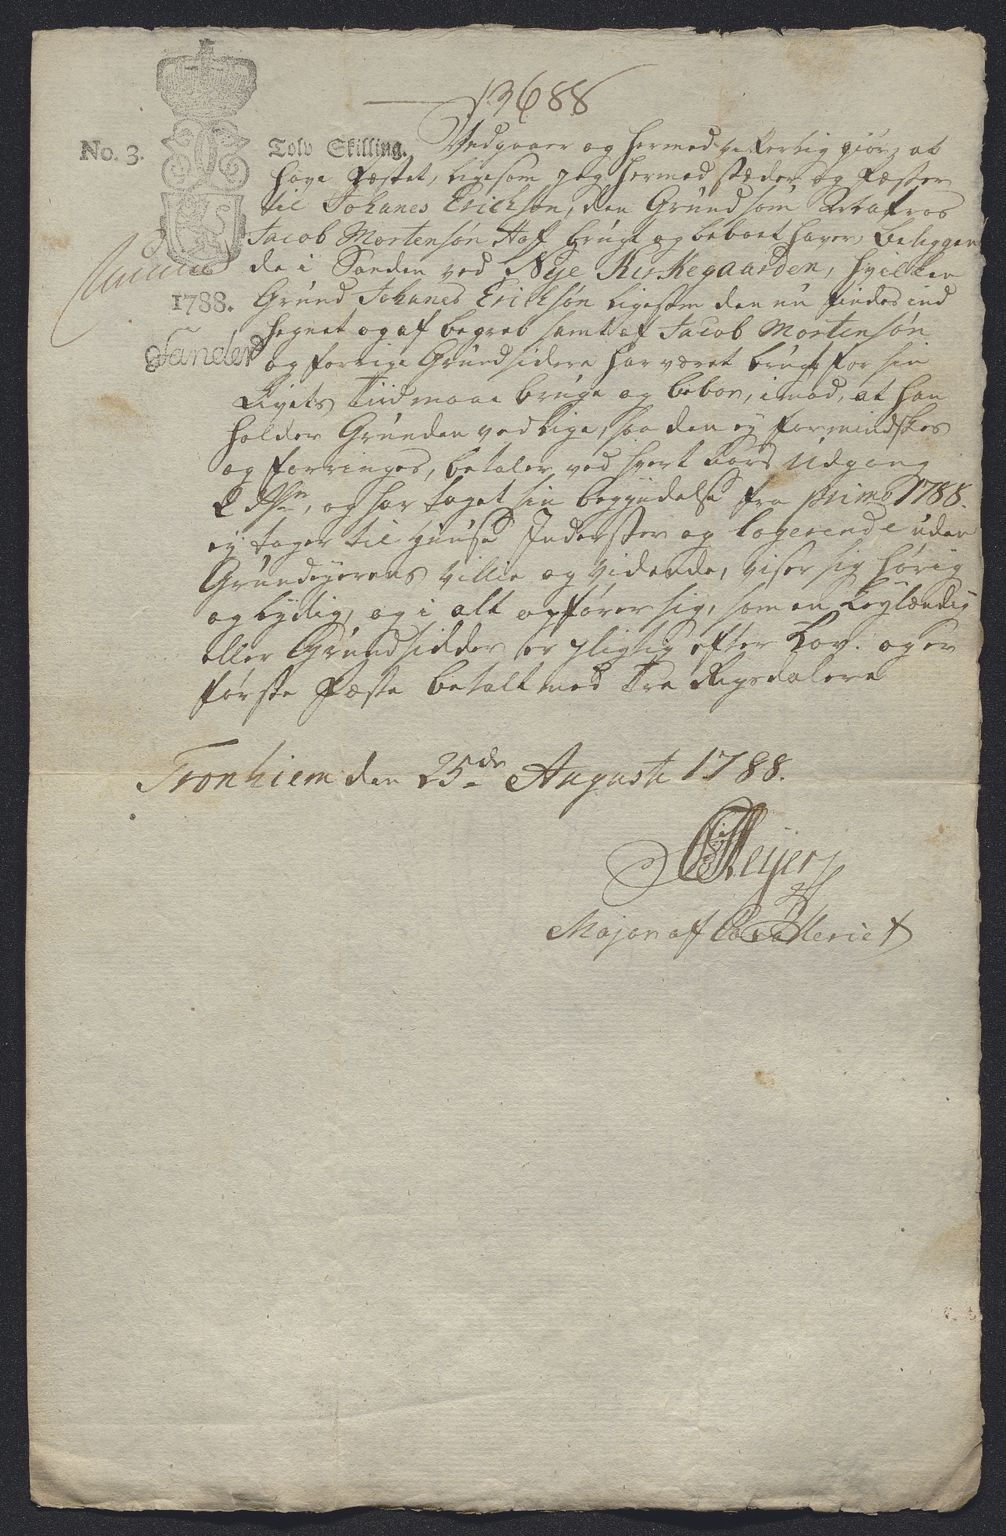 13688
No. 3.
Tolv Skilling.
Vedgaaer og hermed vitterlig giør, at
have Fæstet, ligesom jeg hermed stæder og Fæster
til Johanes Erichsøn, den Grund som
Jacob Mortensøn Haf brugt og beboet haver, beliggen
de i Sanden ved Nye Kirkegaarden, hvilken
1788.
Grund Johanes Erichsøn ligesom den nu findes ind
hegnet og af begreb samt af Jacob Mortensøn
og forrige Grundsiddere har været brugt for sin
Livets Tiid maae bruge og beboe, imod, at han
holder Grunden ved lige, saa den ey formindskes
og forringes, betaler ved hvert Aars Udgang
2 rdlr, og har taget sin begyndelse fra primo 1788.
ey tager til Huuse Inderster og logerende uden
Grundeyerens villie og vidende, viser sig hørig
og lydig, og i alt opfører sig, som en Leylænding
eller Grundsidder er pligtig efter Lov. og er
første Fæste betalt med Tre Rigsdalere
Tronhiem den 25de Augusti 1788.
Meijer
Major af Cavalleriet